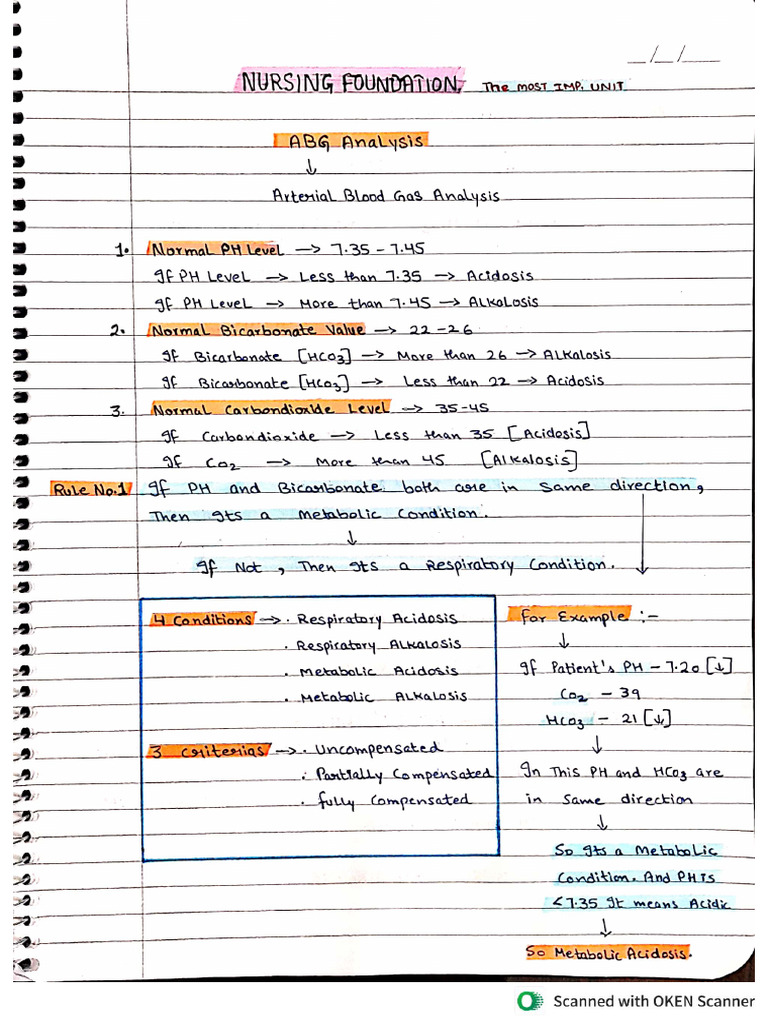 __/__/____
NURSING FOUNDATION, The MOST IMP. UNIT
ABG Analysis
↓
Arterial Blood Gas Analysis
1. Normal PH Level → 7.35 - 7.45
If PH Level → Less than 7.35 → Acidosis
If PH Level → More than 7.45 → ALKALOSIS
2. Normal Bicarbonate Value → 22-26
If Bicarbonate [HCO3] → More than 26 → ALKalosis
If Bicarbonate [HCO3] → Less than 22 → Acidosis
3. Normal Carbondioxide Level → 35-45
If Carbondioxide → Less than 35 [Acidosis]
If CO2 → More than 45 [Alkalosis]
Rule No.1 If PH and Bicarbonate both are in same direction,
Then Its a Metabolic Condition.
↓
If Not, Then Its a Respiratory Condition.
4 Conditions → • Respiratory Acidosis
• Respiratory ALKalosis
• Metabolic Acidosis
• Metabolic ALKalosis
3 Criterias → • Uncompensated
• Partially Compensated
• fully Compensated
for Example :-
↓
If Patient's PH - 7.20 [↓]
CO2 - 39
HCO3 - 21 [↓]
↓
In This PH and HCO3 are
in same direction
↓
So Its a Metabolic
Condition. And PH Is
<7.35 It means Acidic
↓
So Metabolic Acidosis.
Scanned with OKEN Scanner